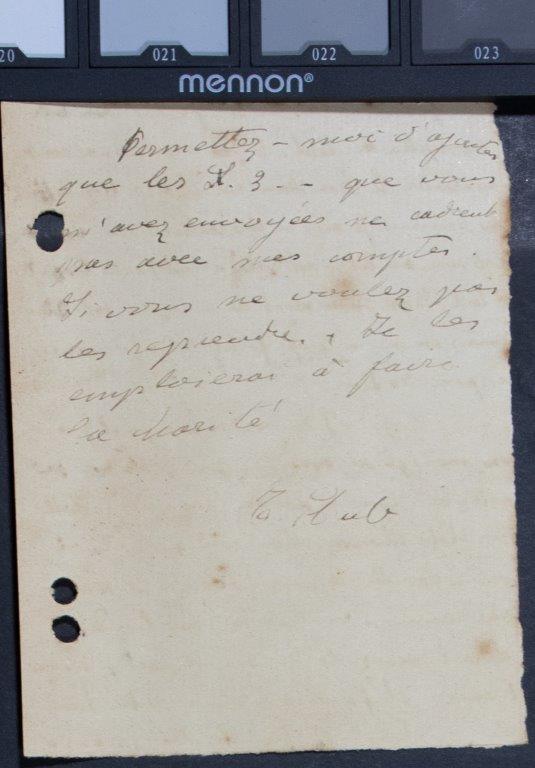 20 021 022 023
mennon®
Permettez-moi d'ajouter
que les L. 3. - que vous
m'avez envoyées ne cadrent
pas avec mes comptes.
Si vous ne voulez pas
les reprendre, Je les
emploierai à faire
la charité